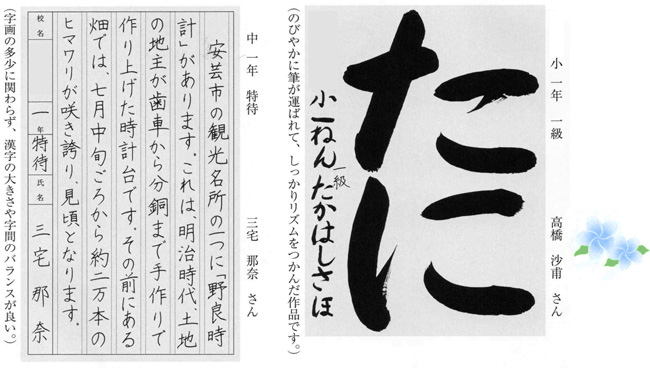 小一年　一級
高橋　沙甫　さん
たに
小一ねん　一級　たかはしさほ
(のびやかに筆が運ばれて、しっかりリズムをつかんだ作品です。)
中一年　特待
三宅　那奈　さん
安芸市の観光名所の一つに「野良時
計」があります。これは、明治時代、土地
の地主が歯車から分銅まで手作りで
作り上げた時計台です。その前にある
畑では、七月中旬ごろから約二万本の
ヒマワリが咲き誇り、見頃となります。
校名　一年　特待　氏名　三宅那奈
(字画の多少に関わらず、漢字の大きさや字間のバランスが良い。)